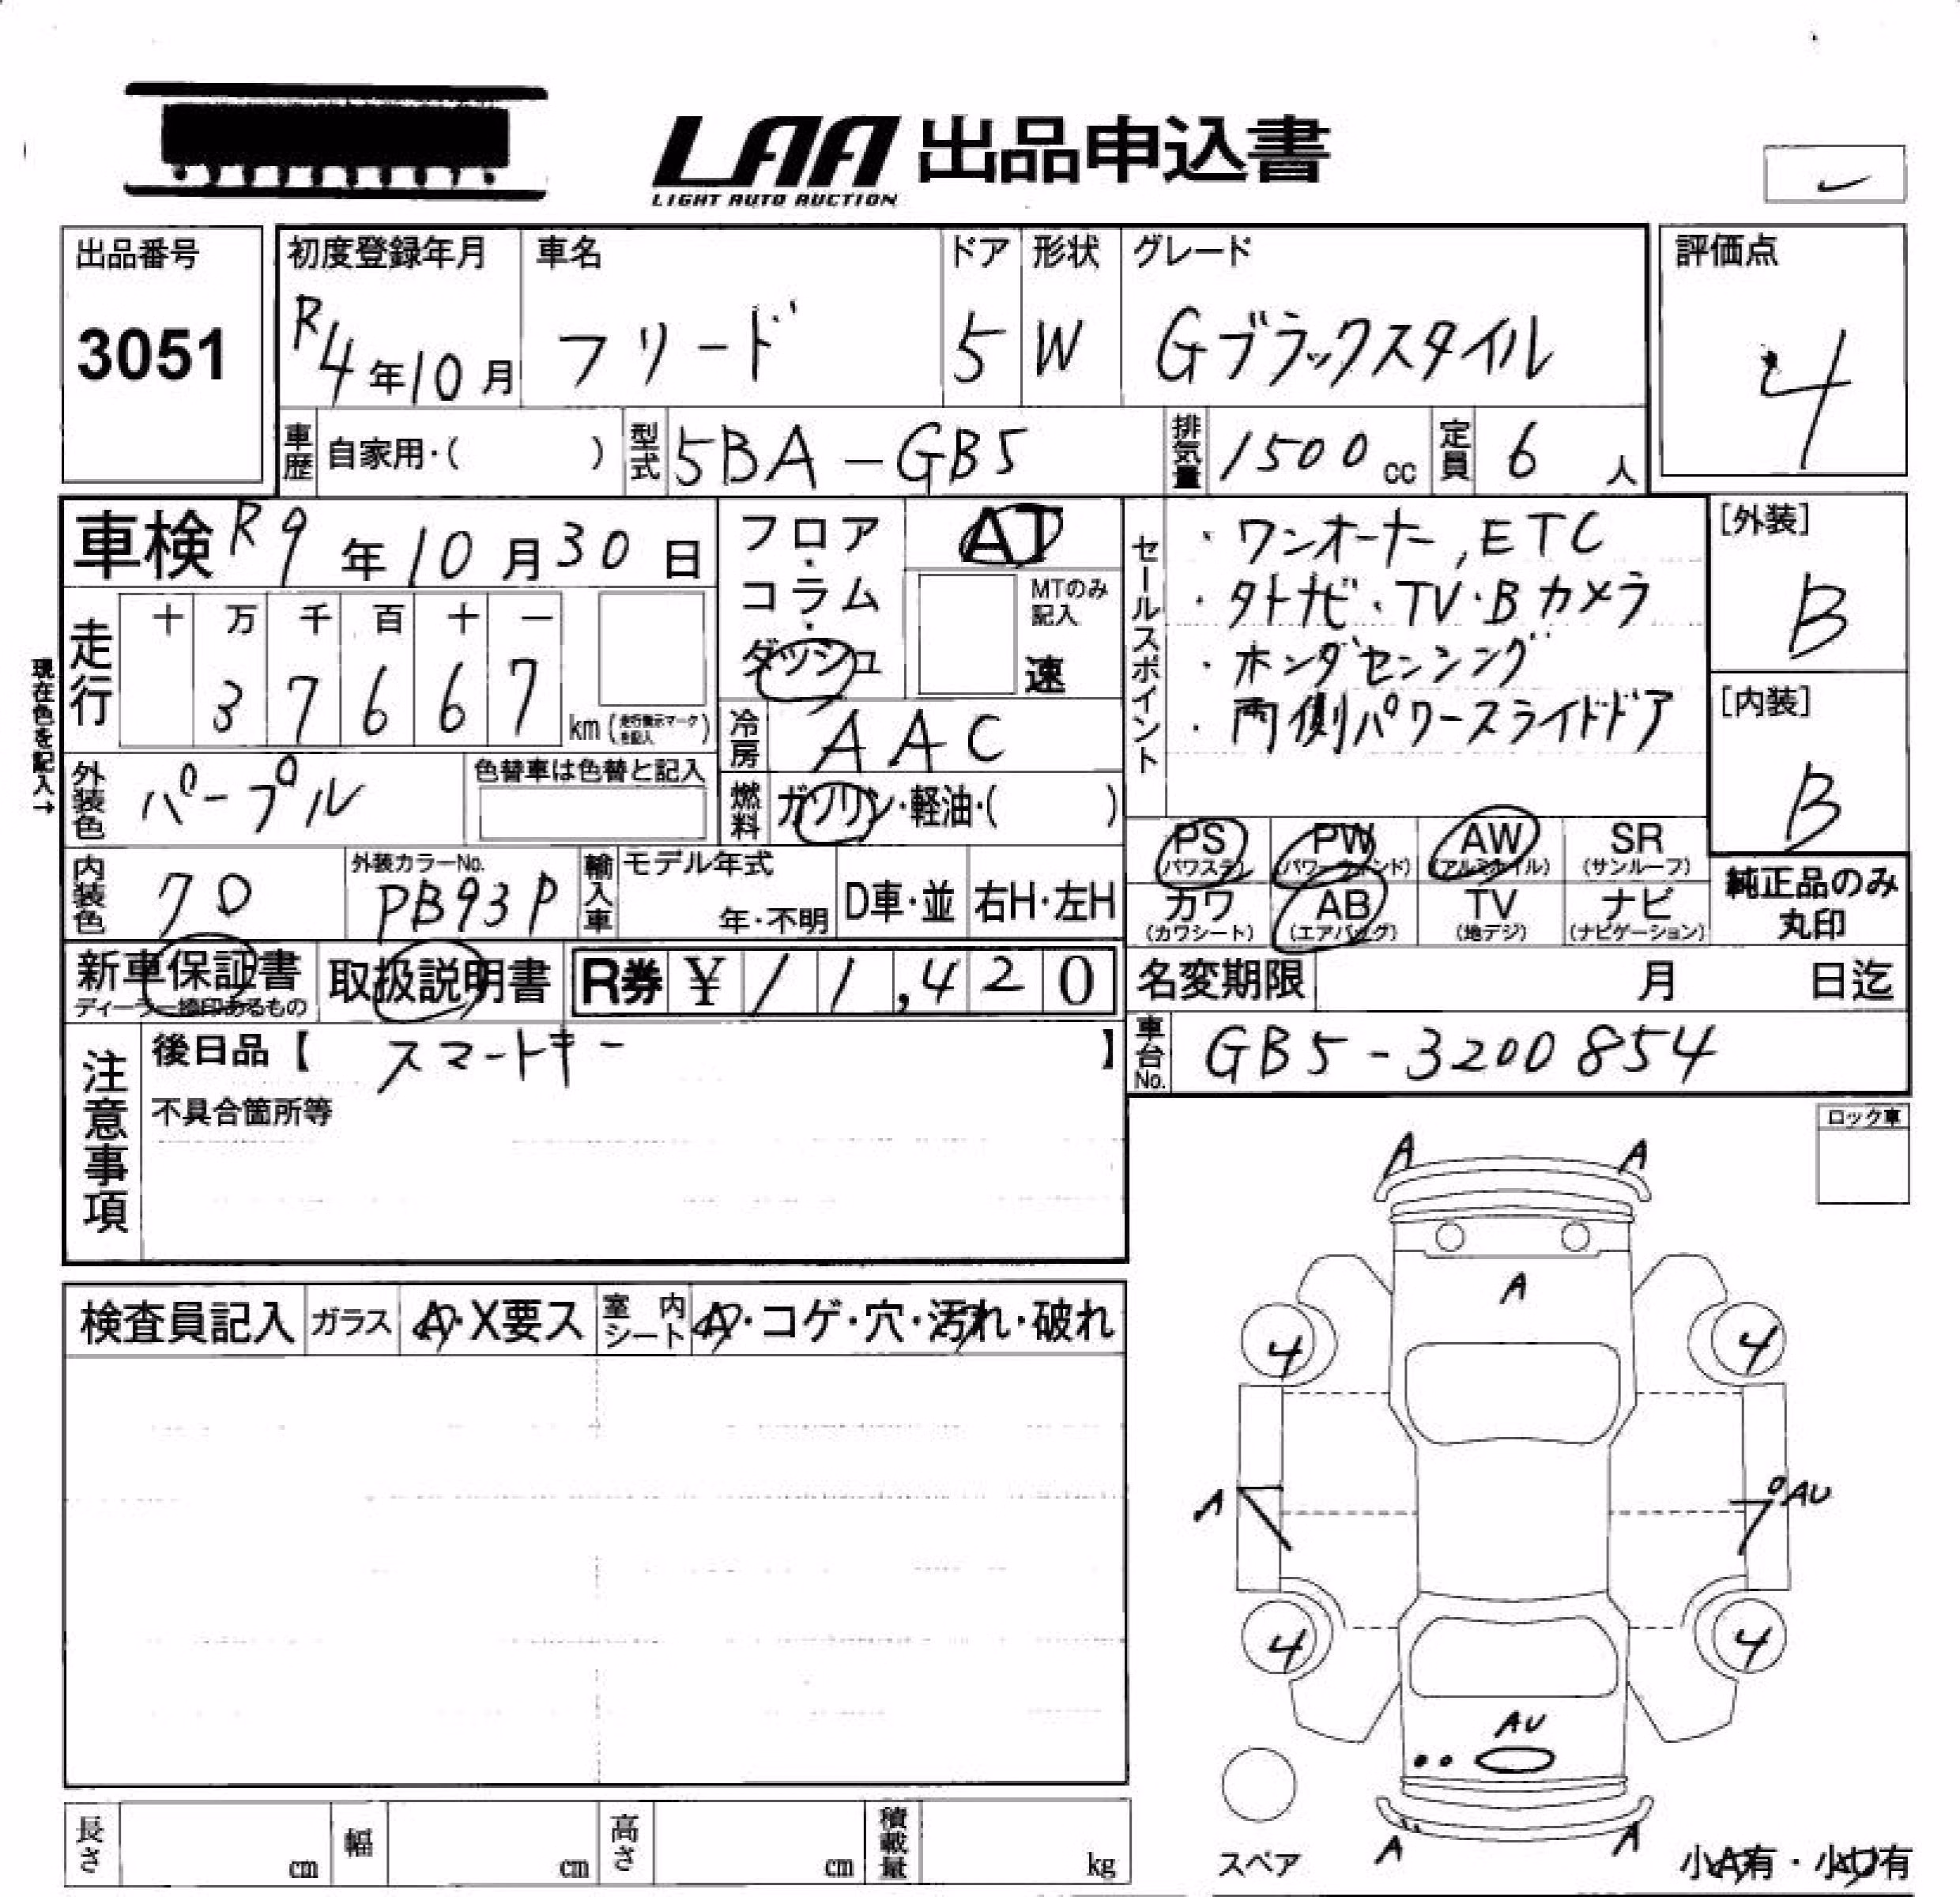 LAA 出品申込書
LIGHT AUTO AUCTION
出品番号
3051
初度登録年月
R4年10月
車名
フリード
ドア
5
形状
W
グレード
Gブラックスタイル
評価点
4
車歴
自家用・( )
型式
5BA-GB5
排気量
1500cc
定員
6人
車検 R9年10月30日
フロア・
コラム・
ダッシュ
AT
MTのみ
記入
速
セールスポイント
・ワンオーナー,ETC
・外ナビ・TV・Bカメラ
・ホンダセンシング
・両側パワースライドドア
[外装]
B
[内装]
B
現在色を記入→
走行
十 万 千 百 十 一
3 7 6 6 7
km(走行表示マークを記入)
冷房
AAC
外装色
パープル
色替車は色替と記入
燃料
ガソリン・軽油・( )
PS
(パワステ)
PW
(パワーウィンド)
AW
(アルミホイル)
SR
(サンルーフ)
カワ
(カワシート)
AB
(エアバッグ)
TV
(地デジ)
ナビ
(ナビゲーション)
純正品のみ
丸印
内装色
外装カラーNo.
PB93P
輸入車
モデル年式
年・不明
D車・並
右H・左H
新車保証書
取扱説明書
R券 ¥11,420
名変期限 月 日迄
車台No.
GB5-3200854
注意事項
後日品【 スマートキー 】
不具合箇所等
ロック車
検査員記入
ガラス
A・X要ス
室内
シート
A・コゲ・穴・汚れ・破れ
A
A
A
4
4
A
AU
4
4
AU
A
A
スペア
小A有・小U有
長さ
cm
幅
cm
高さ
cm
積載量
kg